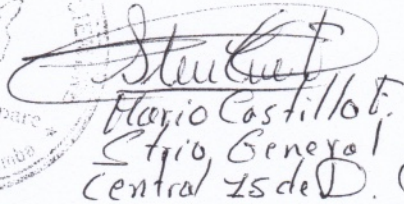 pare
mba
Mario Castillo F.
Strio General
Central 25 de D.